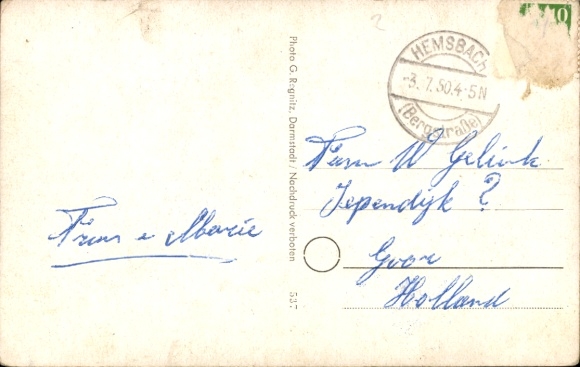 HEMSBACH
-3.7.50.4-5N
(Bergstraße)
10
Photo G. Regnitz, Darmstadt / Nachdruck verboten
537
Fam W Gelink
Iependijk ?
Goor
Holland
Frans e Marie